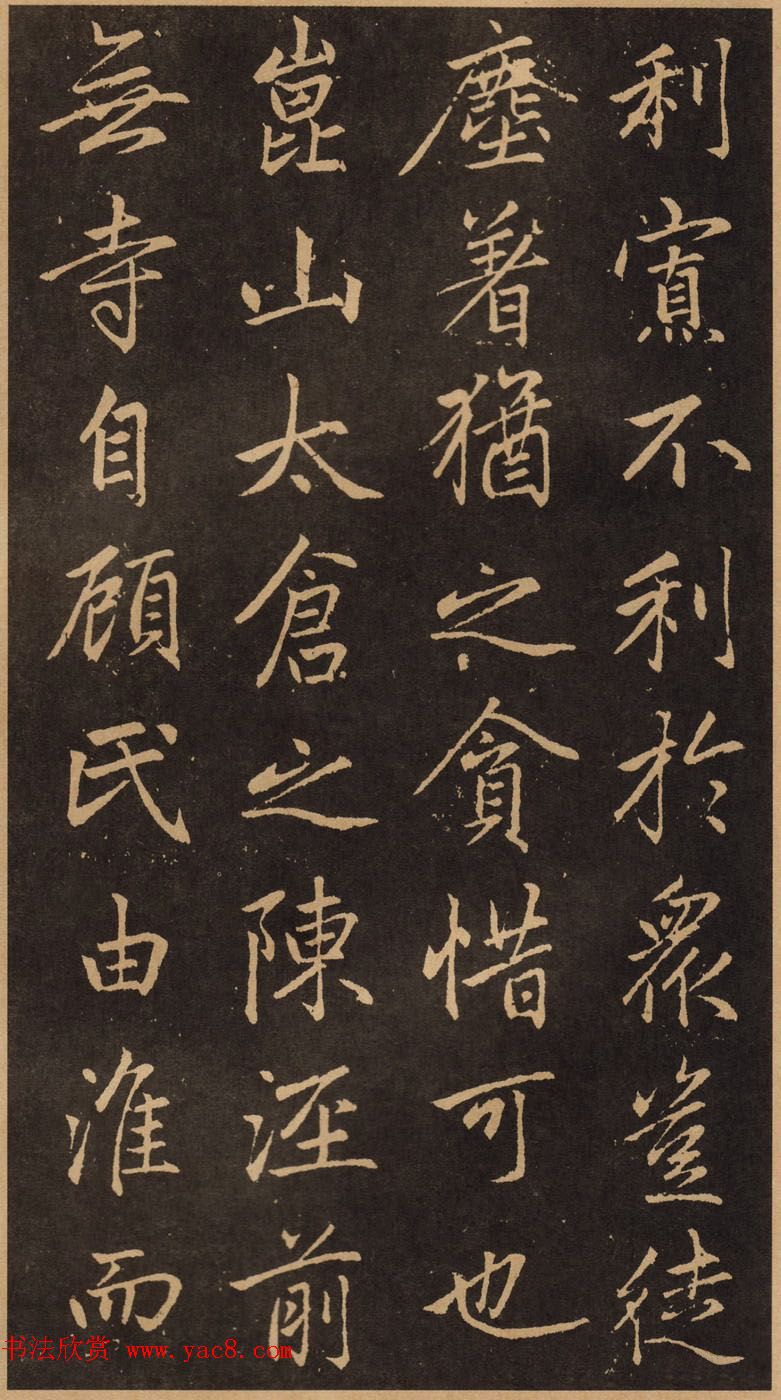 利寘不利於眾豈徒
塵著猶之貪惜可也
崑山太倉之陳涇前
無寺自顧民由淮而
书法欣赏 www.yac8.com